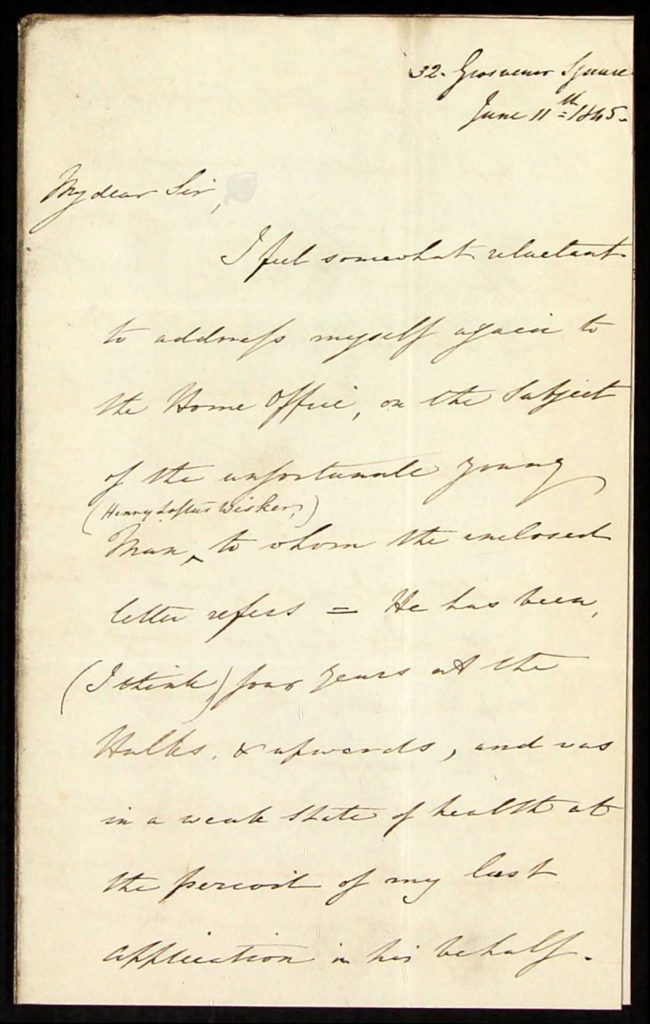 32. Grosvenor Square
June 11th = 1845.
My dear Sir,
I feel somewhat reluctant
to address myself again to
the Home Office, on the Subject
of the unfortunate young
(Henry Loftus Wisker,)
Man, ^ to whom the enclosed
letter refers = He has been,
(I think) four years at the
Hulks, & upwards, and was
in a weak state of health at
the period of my last
application in his behalf.